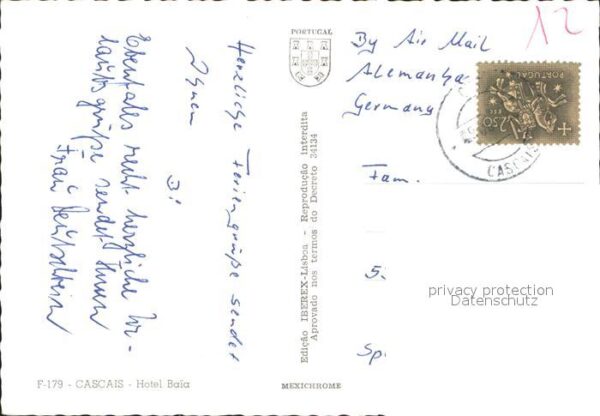 Herzliche Feriengrüße sendet
Ihnen
Ebenfalls recht herzliche Ur-
laubsgrüße sendet Ihnen
Frau
F-179 - CASCAIS - Hotel Baía
PORTUGAL
Edição IBEREX-Lisboa - Reprodução interdita
Aprovado nos termos do Decreto 34134
MEXICHROME
12
By Air Mail
Alemanha
Germany
Fam.
5.
Sp.
PORTUGAL
2$50
CASCAIS
privacy protection
Datenschutz